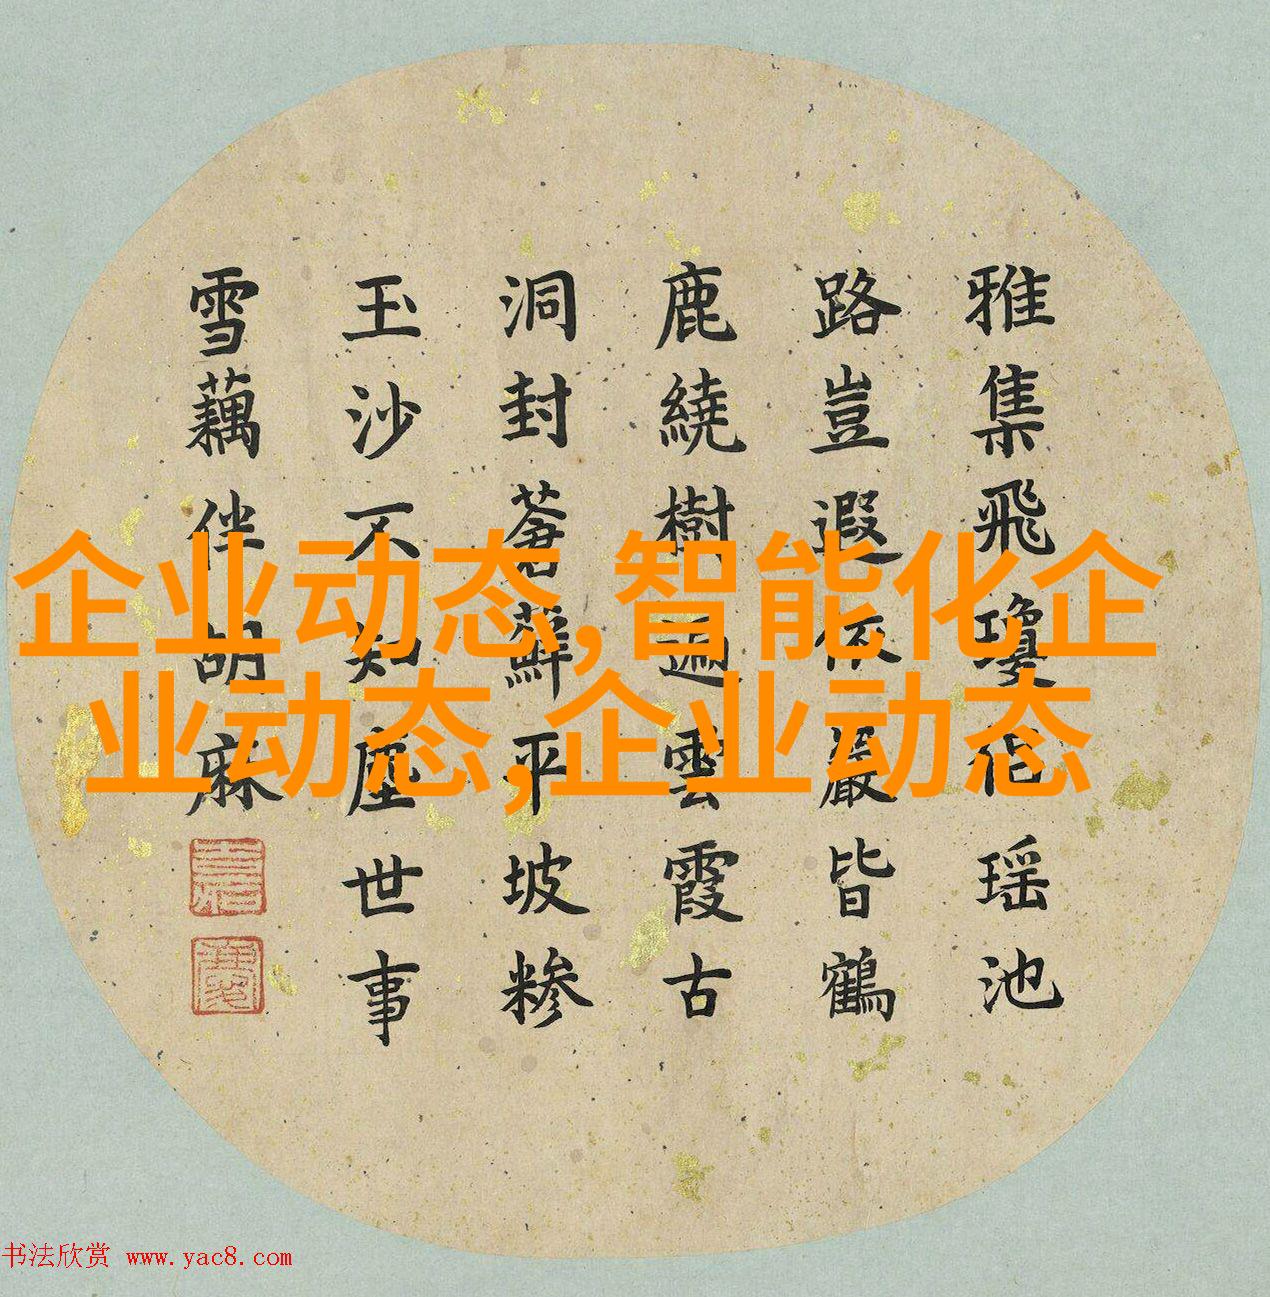 雅集飛瓊瑶池
路豈遐依巖皆鶴
鹿繞樹雲霞古
洞封蒼蘚平坡糁
玉沙不知塵世事
雪藕伴胡麻
企业动态,智能化企
业动态,企业动态
书法欣赏 www.yac8.com